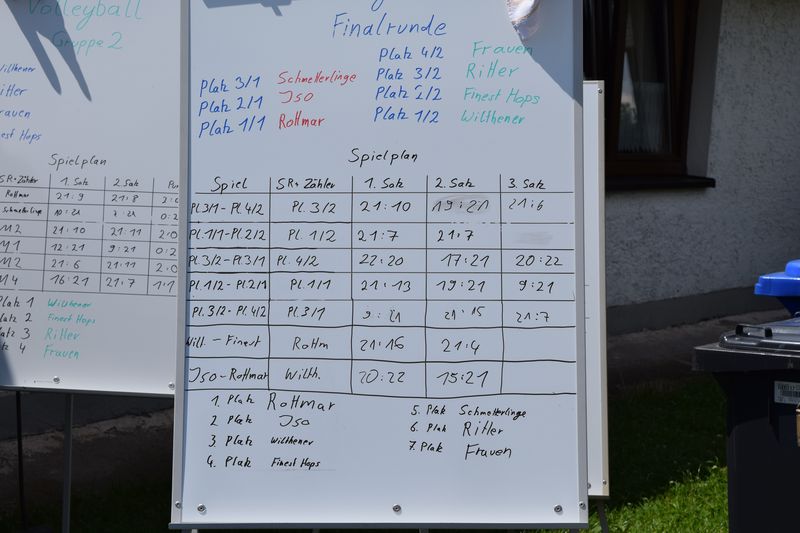 Volleyball
Gruppe 2
Wilthener
Ritter
Frauen
Finest Hops
Spielplan
SR+Zähler 1. Satz 2. Satz
Rottmar 21:9 21:8
Schmetterlinge 10:21 7:21 0:2
M2 21:10 21:11 2:0
M1 12:21 9:21 0:2
M2 21:6 21:11 2:0
M4 16:21 21:7 1:1
Platz 1 Wilthener
Platz 2 Finest Hops
Platz 3 Ritter
Platz 4 Frauen
Finalrunde
Platz 3/1 Schmetterlinge
Platz 2/1 Iso
Platz 1/1 Rottmar
Platz 4/2 Frauen
Platz 3/2 Ritter
Platz 2/2 Finest Hops
Platz 1/2 Wilthener
Spielplan
Spiel SR+Zähler 1. Satz 2. Satz 3. Satz
Pl.3/1-Pl.4/2 Pl.3/2 21:10 19:21 21:6
Pl.1/1-Pl.2/2 Pl.1/2 21:7 21:7
Pl.3/2-Pl.3/1 Pl.4/2 22:20 17:21 20:22
Pl.1/2-Pl.2/1 Pl.1/1 21:13 19:21 9:21
Pl.3/2-Pl.4/2 Pl.3/1 9:21 21:15 21:7
Wilt. - Finest Rottm 21:16 21:4
Iso-Rottmar Wilth. 20:22 15:21
1. Platz Rottmar
2 Platz Iso
3 Platz Wilthener
4. Platz Finest Hops
5. Platz Schmetterlinge
6. Platz Ritter
7. Platz Frauen